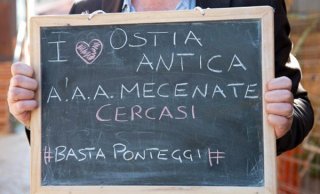 I ♥ OSTIA
ANTICA
A'.A.A. MECENATE
CERCASI
#BASTA PONTEGGI#